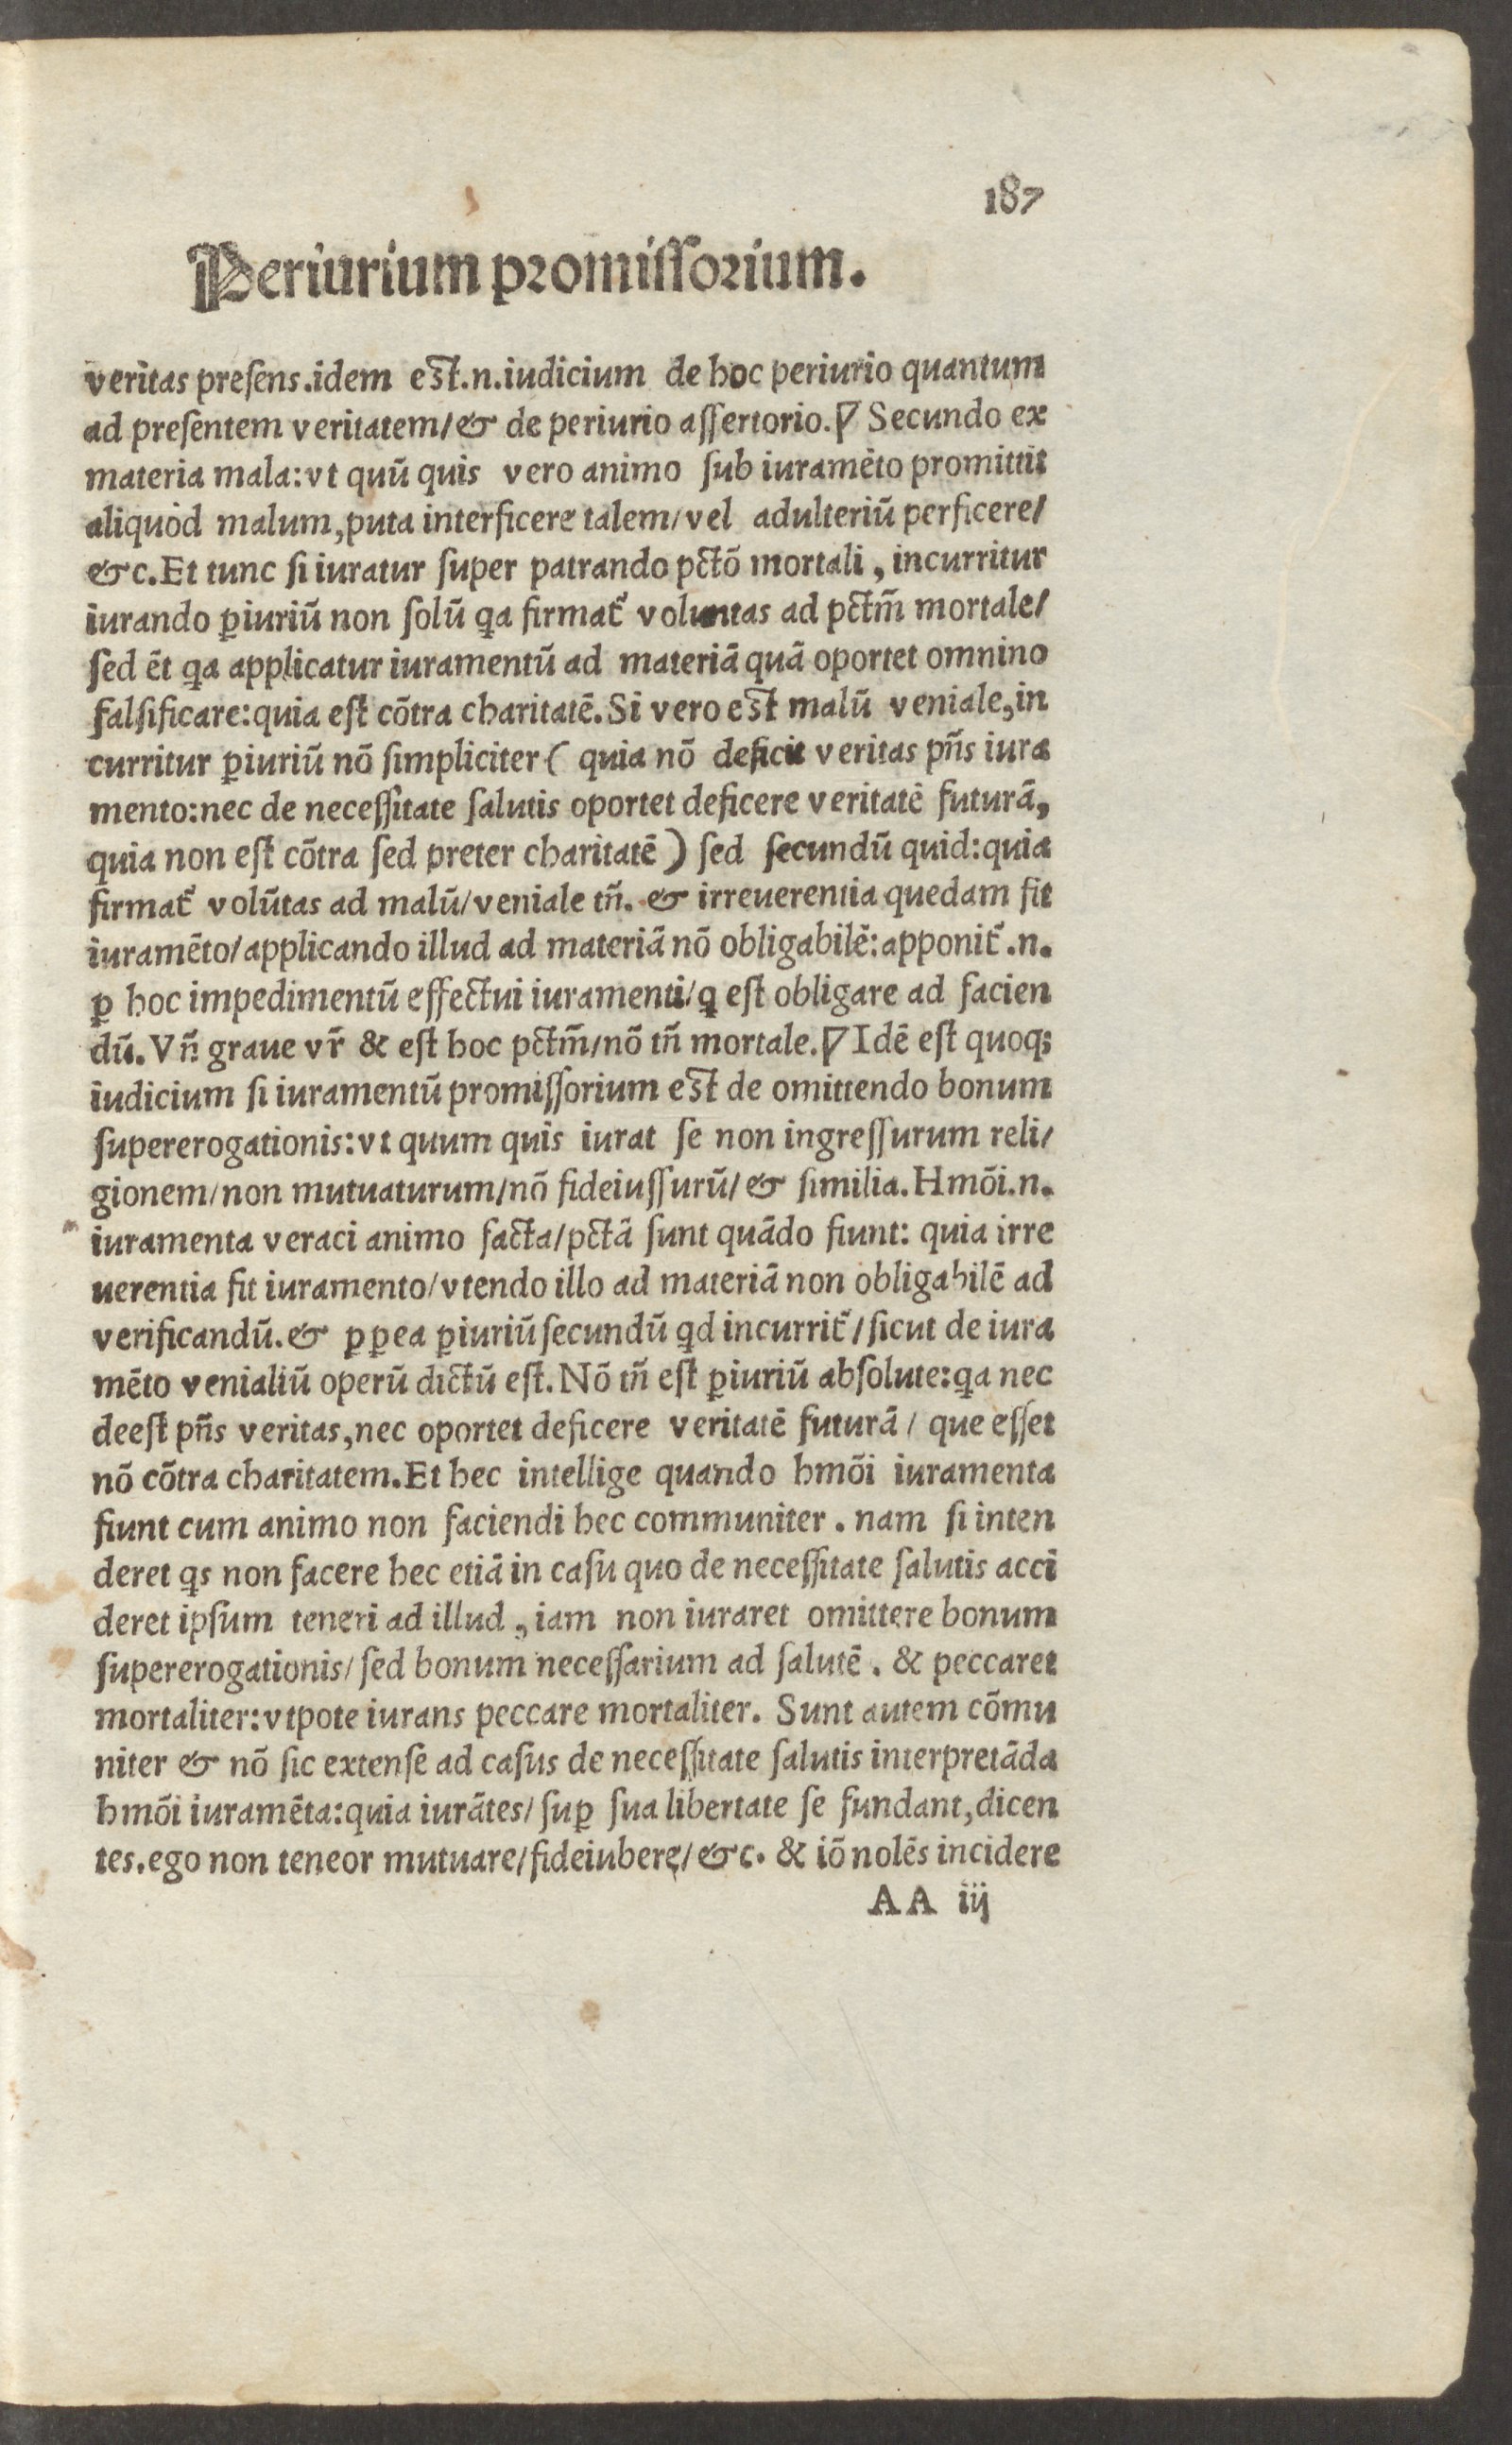 187
Periurium promissorium.
veritas presens.idem est.n.iudicium de hoc periurio quantum
ad presentem veritatem/& de periurio assertorio.∇ Secundo ex
materia mala:vt quū quis vero animo sub iuramēto promittit
aliquod malum,puta interficere talem/vel adulteriū perficere/
&c.Et tunc si iuratur super patrando pctō mortali, incurritur
iurando ꝑiuriū non solū qa firmat᷑ voluntas ad pctm̄ mortale/
sed ēt qa applicatur iuramentū ad materiā quā oportet omnino
falsificare:quia est cōtra charitatē.Si vero est malū veniale,in
curritur ꝑiuriū nō simpliciter ( quia nō deficit veritas pn̄s iura
mento:nec de necessitate salutis oportet deficere veritatē futurā,
quia non est cōtra sed preter charitatē ) sed secundū quid:quia
firmat᷑ volūtas ad malū/veniale tn̄. & irreuerentia quedam fit
iuramēto/applicando illud ad materiā nō obligabilē:apponit᷑.n.
ꝑ hoc impedimentū effectui iuramenti/q est obligare ad facien
dū.Vn̄ graue vr̄ & est hoc pctm̄/nō tn̄ mortale.∇ Idē est quoqꝫ
iudicium si iuramentū promissorium est de omittendo bonum
supererogationis:vt quum quis iurat se non ingressurum reli/
gionem/non mutuaturum/nō fideiussurū/& similia.Hmōi.n.
iuramenta veraci animo facta/pctā sunt quādo fiunt: quia irre
uerentia fit iuramento/vtendo illo ad materiā non obligabilē ad
verificandū.& ꝑꝑea ꝑiuriū secundū qd incurrit᷑/sicut de iura
mēto venialiū operū dictū est.Nō tn̄ est ꝑiuriū absolute:qa nec
deest pn̄s veritas,nec oportet deficere veritatē futurā/ que esset
nō cōtra charitatem.Et hec intellige quando hmōi iuramenta
fiunt cum animo non faciendi hec communiter. nam si inten
deret qs non facere hec etiā in casu quo de necessitate salutis acci
deret ipsum teneri ad illud, iam non iuraret omittere bonum
supererogationis/sed bonum necessarium ad salutē. & peccaret
mortaliter:vtpote iurans peccare mortaliter. Sunt autem cōmu
niter & nō sic extense ad casus de necessitate salutis interpretāda
hmōi iuramēta:quia iurātes/suꝑ sua libertate se fundant,dicen
tes.ego non teneor mutuare/fideiubere/&c. & iō nolēs incidere
AA iij